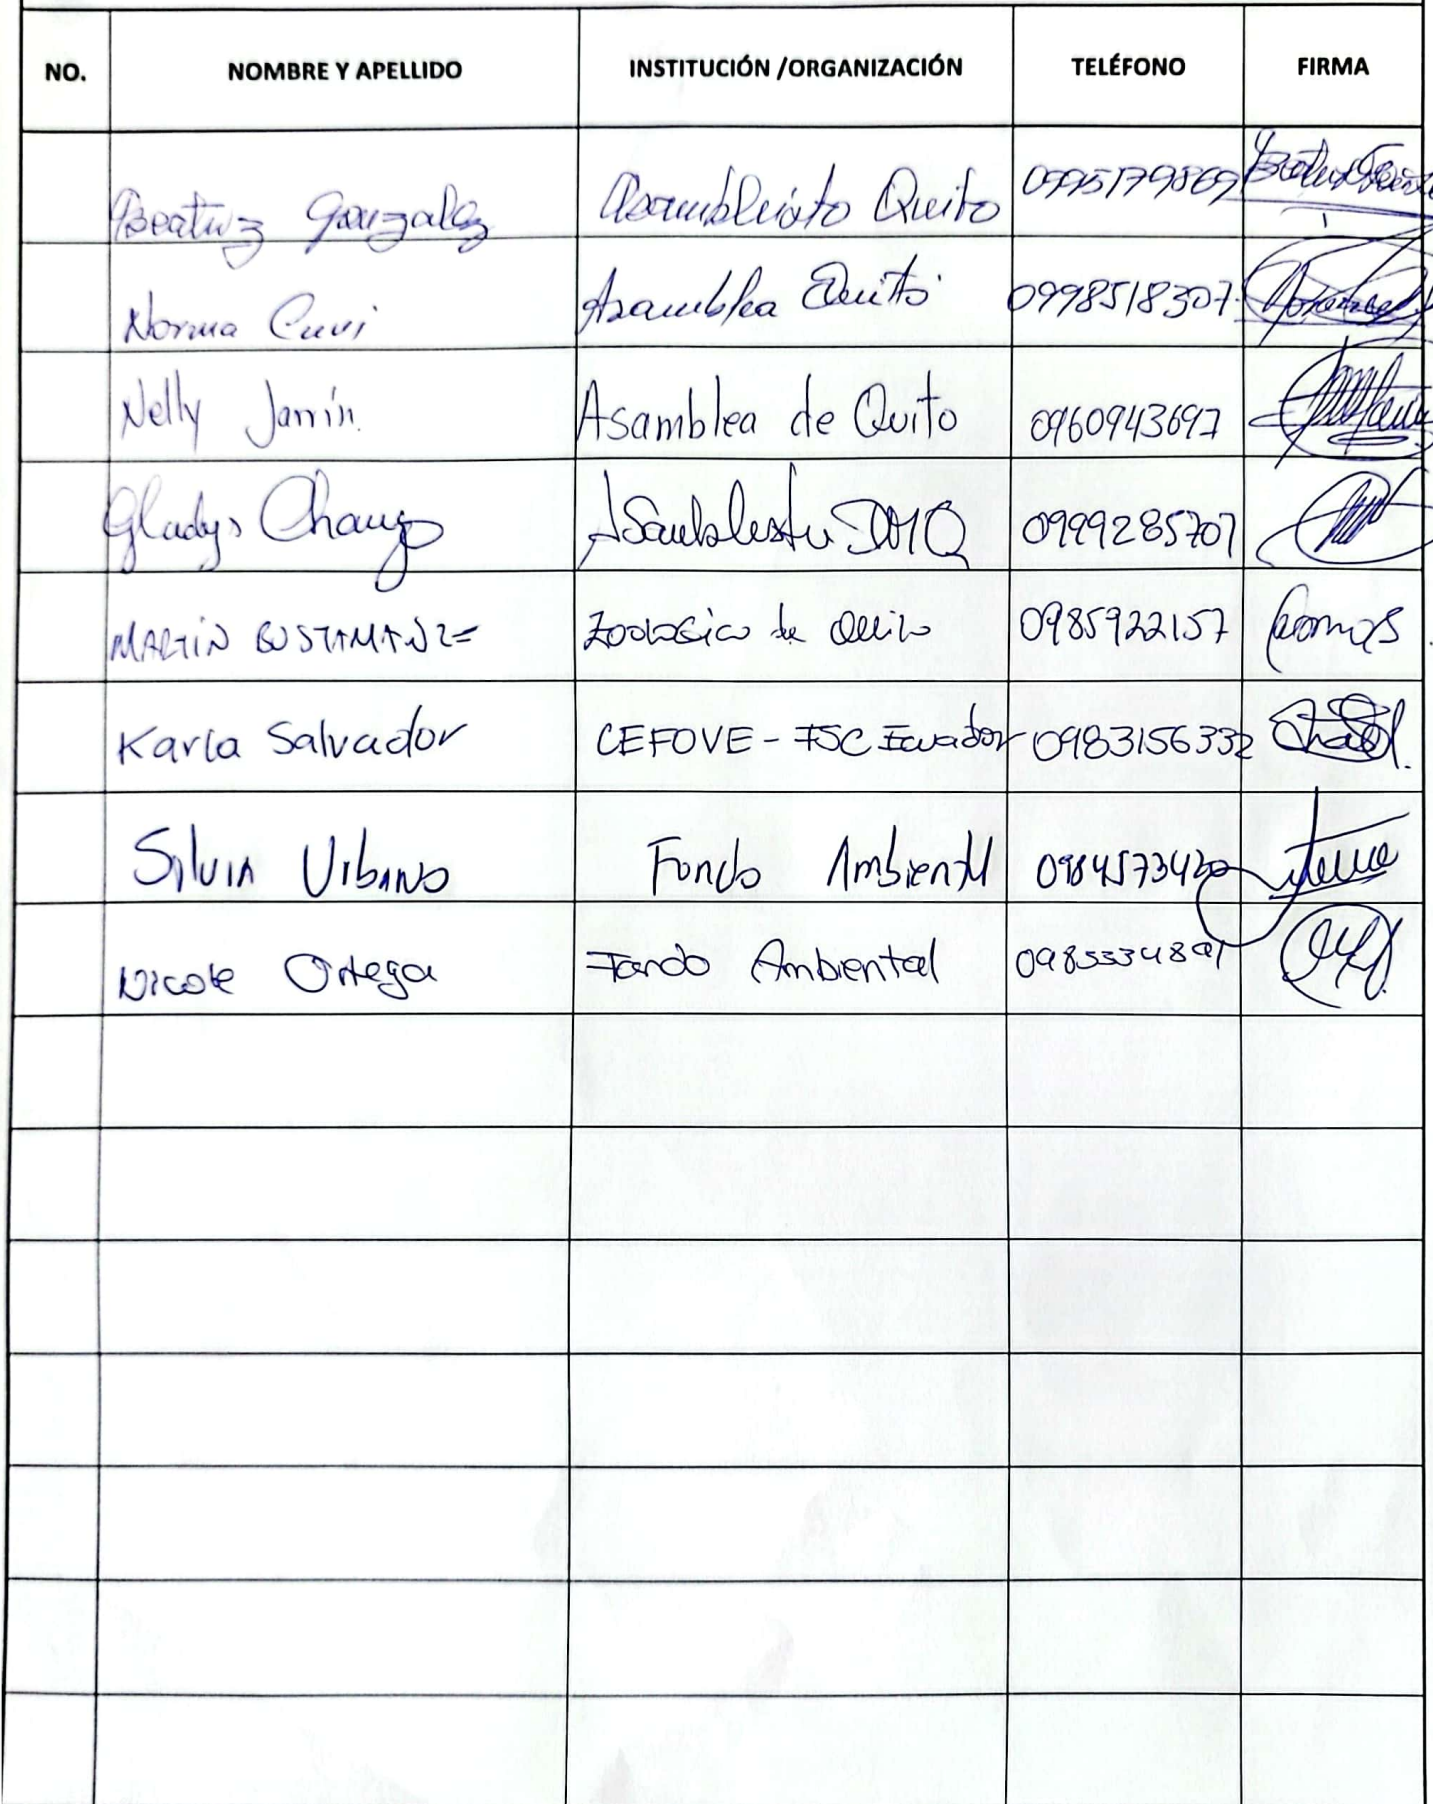 NO. NOMBRE Y APELLIDO INSTITUCIÓN /ORGANIZACIÓN TELÉFONO FIRMA
Beatriz Gonzalez Asambleista Quito 0995179869
Norma Cuvi Asamblea Quito 0998518307
Nelly Jarrín Asamblea de Quito 0960943697
Gladys Chango Asambleista DMQ 0999285707
MARTÍN BUSTAMANTE Zoológico de Quito 0985922157
Karla Salvador CEFOVE - FSC Ecuador 0983156332
Silvia Urbano Fondo Ambiental 0984573420
Nicole Ortega Fondo Ambiental